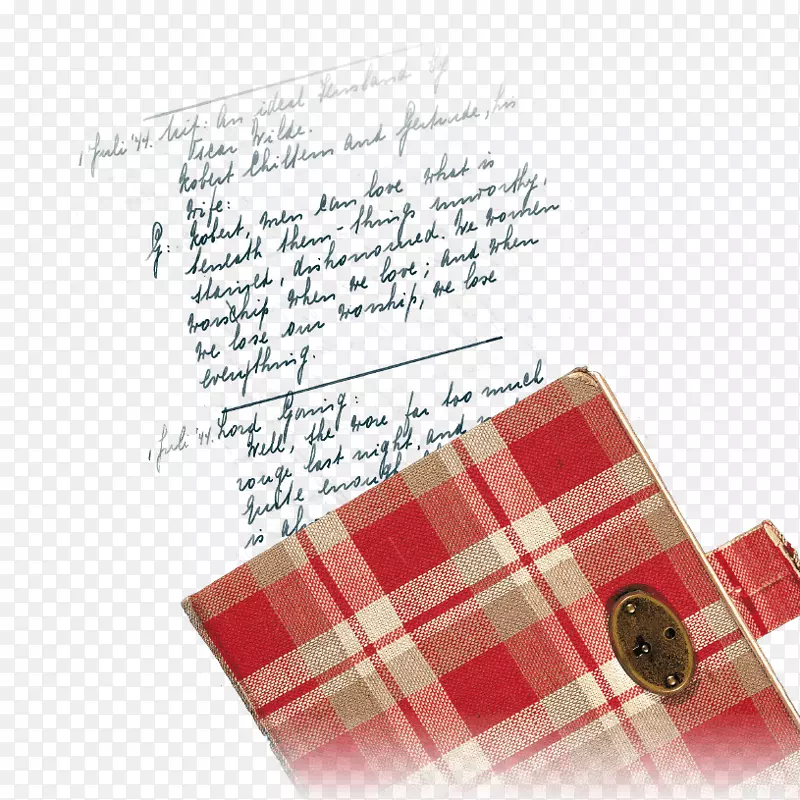 1 Juli '44. Uit: An ideal Husband by
Oscar Wilde.
Robert Chiltern and Gertrude, his
wife:
G: Robert, men can love what is
beneath them - things unworthy,
stained, dishonoured. We women
worship when we love; and when
we lose our worship, we lose
everything.
1 Juli '44. Lord Goring:
Well, she wore far too much
rouge last night, and not
quite enough
is al